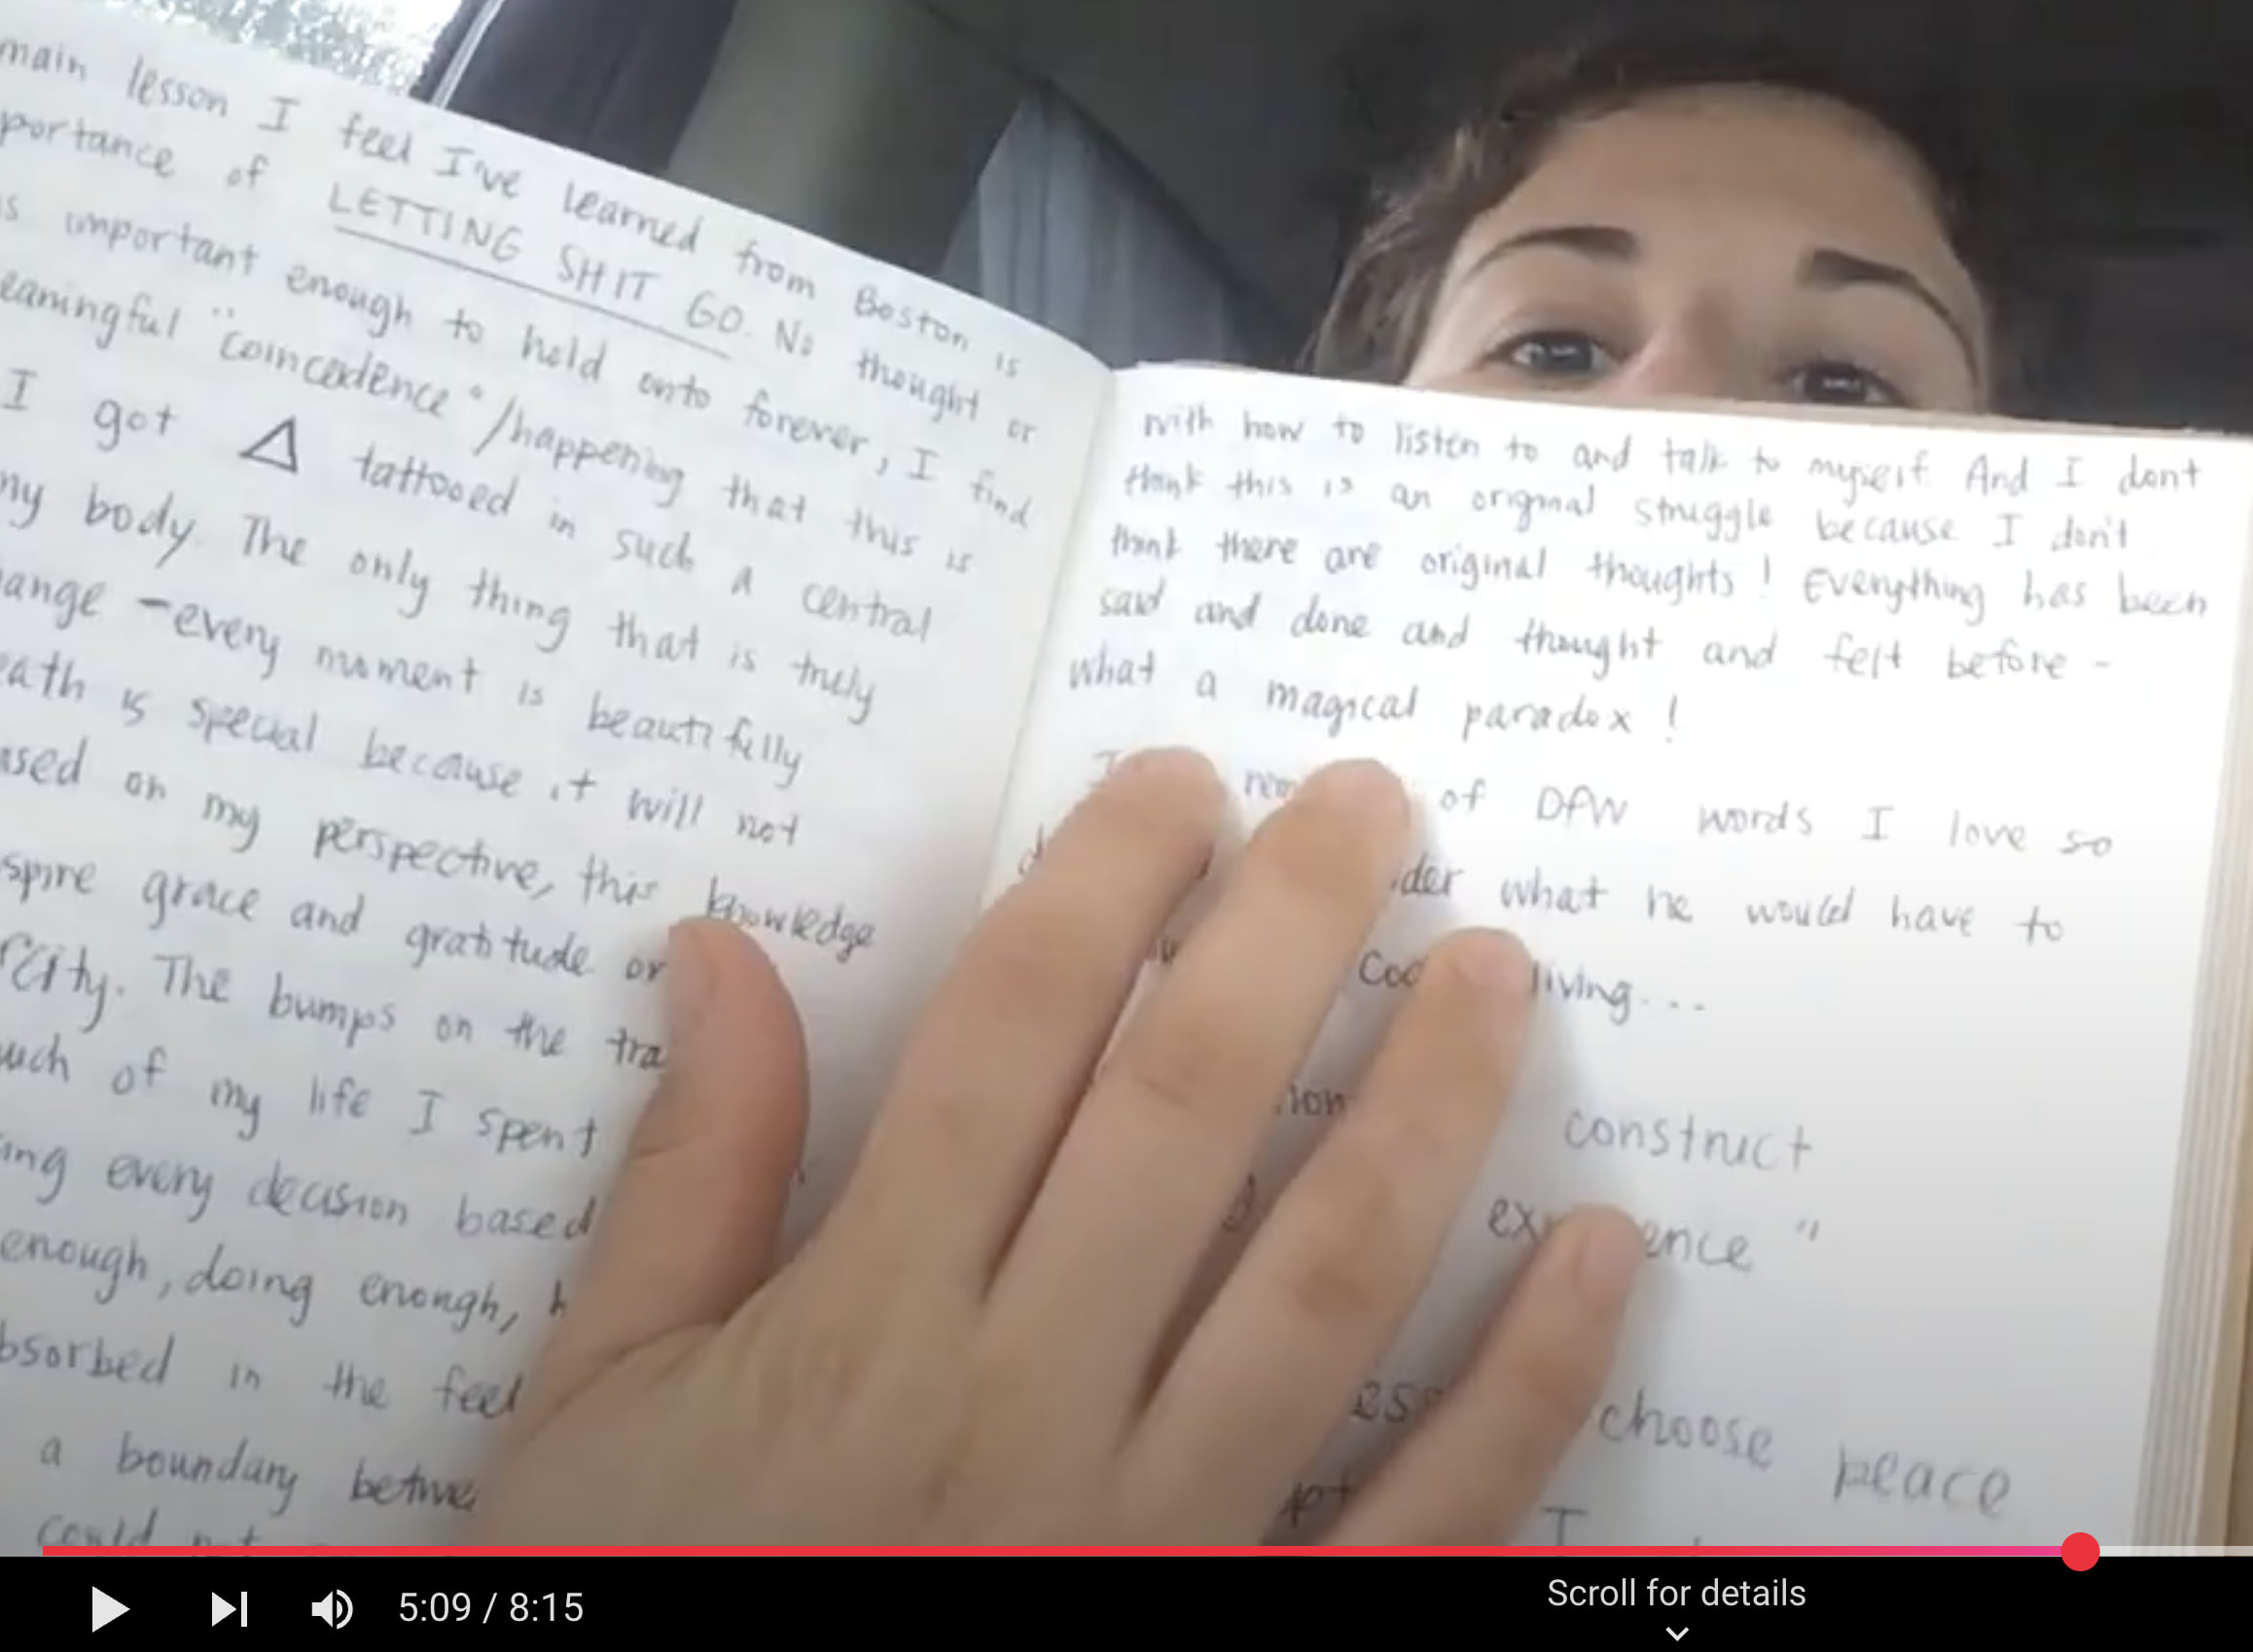 main lesson I feel I've learned from Boston is
portance of LETTING SHIT GO. No thought or
is important enough to hold onto forever, I find
eaningful "coincedence"/happening that this is
I got △ tattooed in such a central
my body. The only thing that is truly
ange - every moment is beautifully
eath is special because it will not
ased on my perspective, this knowledge
spire grace and gratitude or
rcity. The bumps on the tra
uch of my life I spent
ing every decision based
enough, doing enough, h
bsorbed in the feel
a boundary betwe
could not
with how to listen to and talk to myself. And I dont
think this is an original struggle because I don't
think there are original thoughts! Everything has been
said and done and thought and felt before -
what a magical paradox!
I of DFW words I love so
der what he would have to
living...
construct
ex ence"
choose peace
I
5:09 / 8:15
Scroll for details